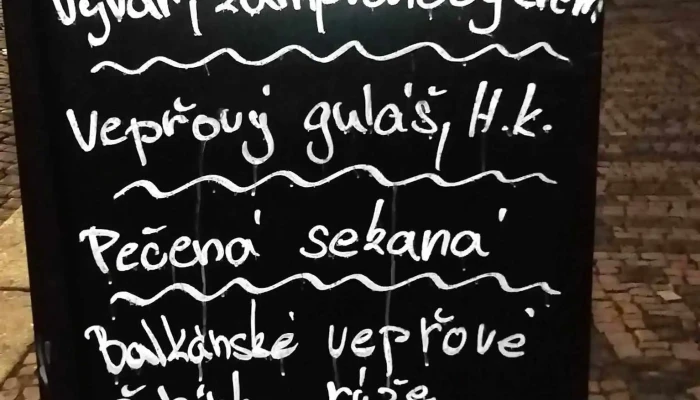 Vývar,
Vepřový guláš, H.k.
Pečená sekaná
Balkánské vepřové
rýže